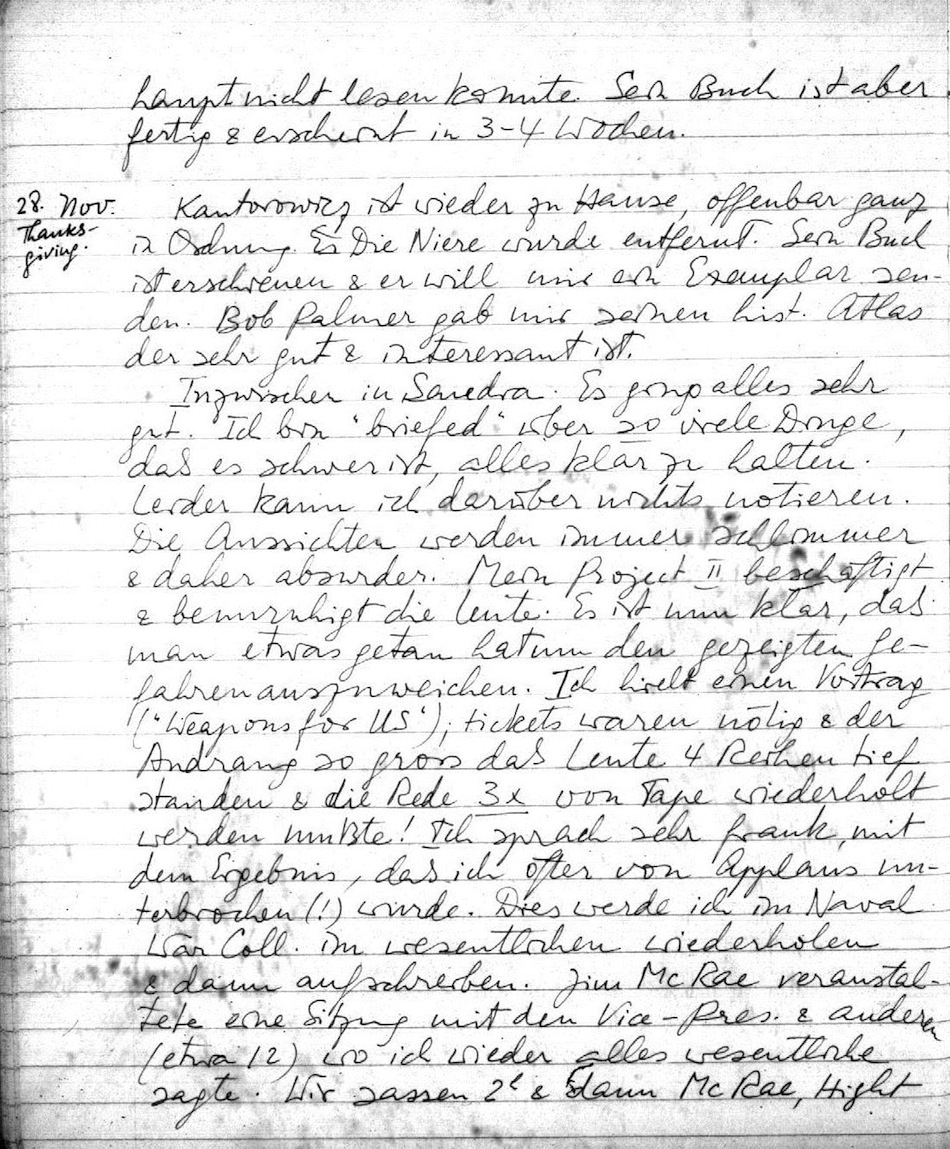 haupt nicht lesen konnte. Sein Buch ist aber
fertig & erscheint in 3-4 Wochen.
28. Nov.
Thanks-
giving.
Kantorowicz ist wieder zu Hause, offenbar ganz
in Ordnung. Es Die Niere wurde entfernt. Sein Buch
ist erschienen & er will mir ein Exemplar sen-
den. Bob Palmer gab mir seinen hist. Atlas
der sehr gut & interessant ist.
Inzwischen in Sandia. Es ging alles sehr
gut. Ich bin "briefed" über so viele Dinge,
daß es schwer ist, alles klar zu halten.
Leider kann ich darüber nichts notieren.
Die Aussichten werden immer schlimmer
& daher absurder. Mein Project II beschäftigt
& beunruhigt die Leute. Es ist nun klar, daß
man etwas getan hat um den gezeigten Ge-
fahren auszuweichen. Ich hielt einen Vortrag
("Weapons for US"); tickets waren nötig & der
Andrang so gross daß Leute 4 Reihen tief
standen & die Rede 3x von Tape wiederholt
werden mußte! Ich sprach sehr frank, mit
dem Ergebnis, daß ich öfter von Applaus un-
terbrochen (!) wurde. Dies werde ich im Naval
War Coll. im wesentlichen wiederholen
& dann aufschreiben. Jim McRae veranstal-
tete eine Sitzung mit den Vice-Pres. & anderen
(etwa 12) wo ich wieder alles wesentliche
sagte. Wir sassen 2h & dann McRae, Hight